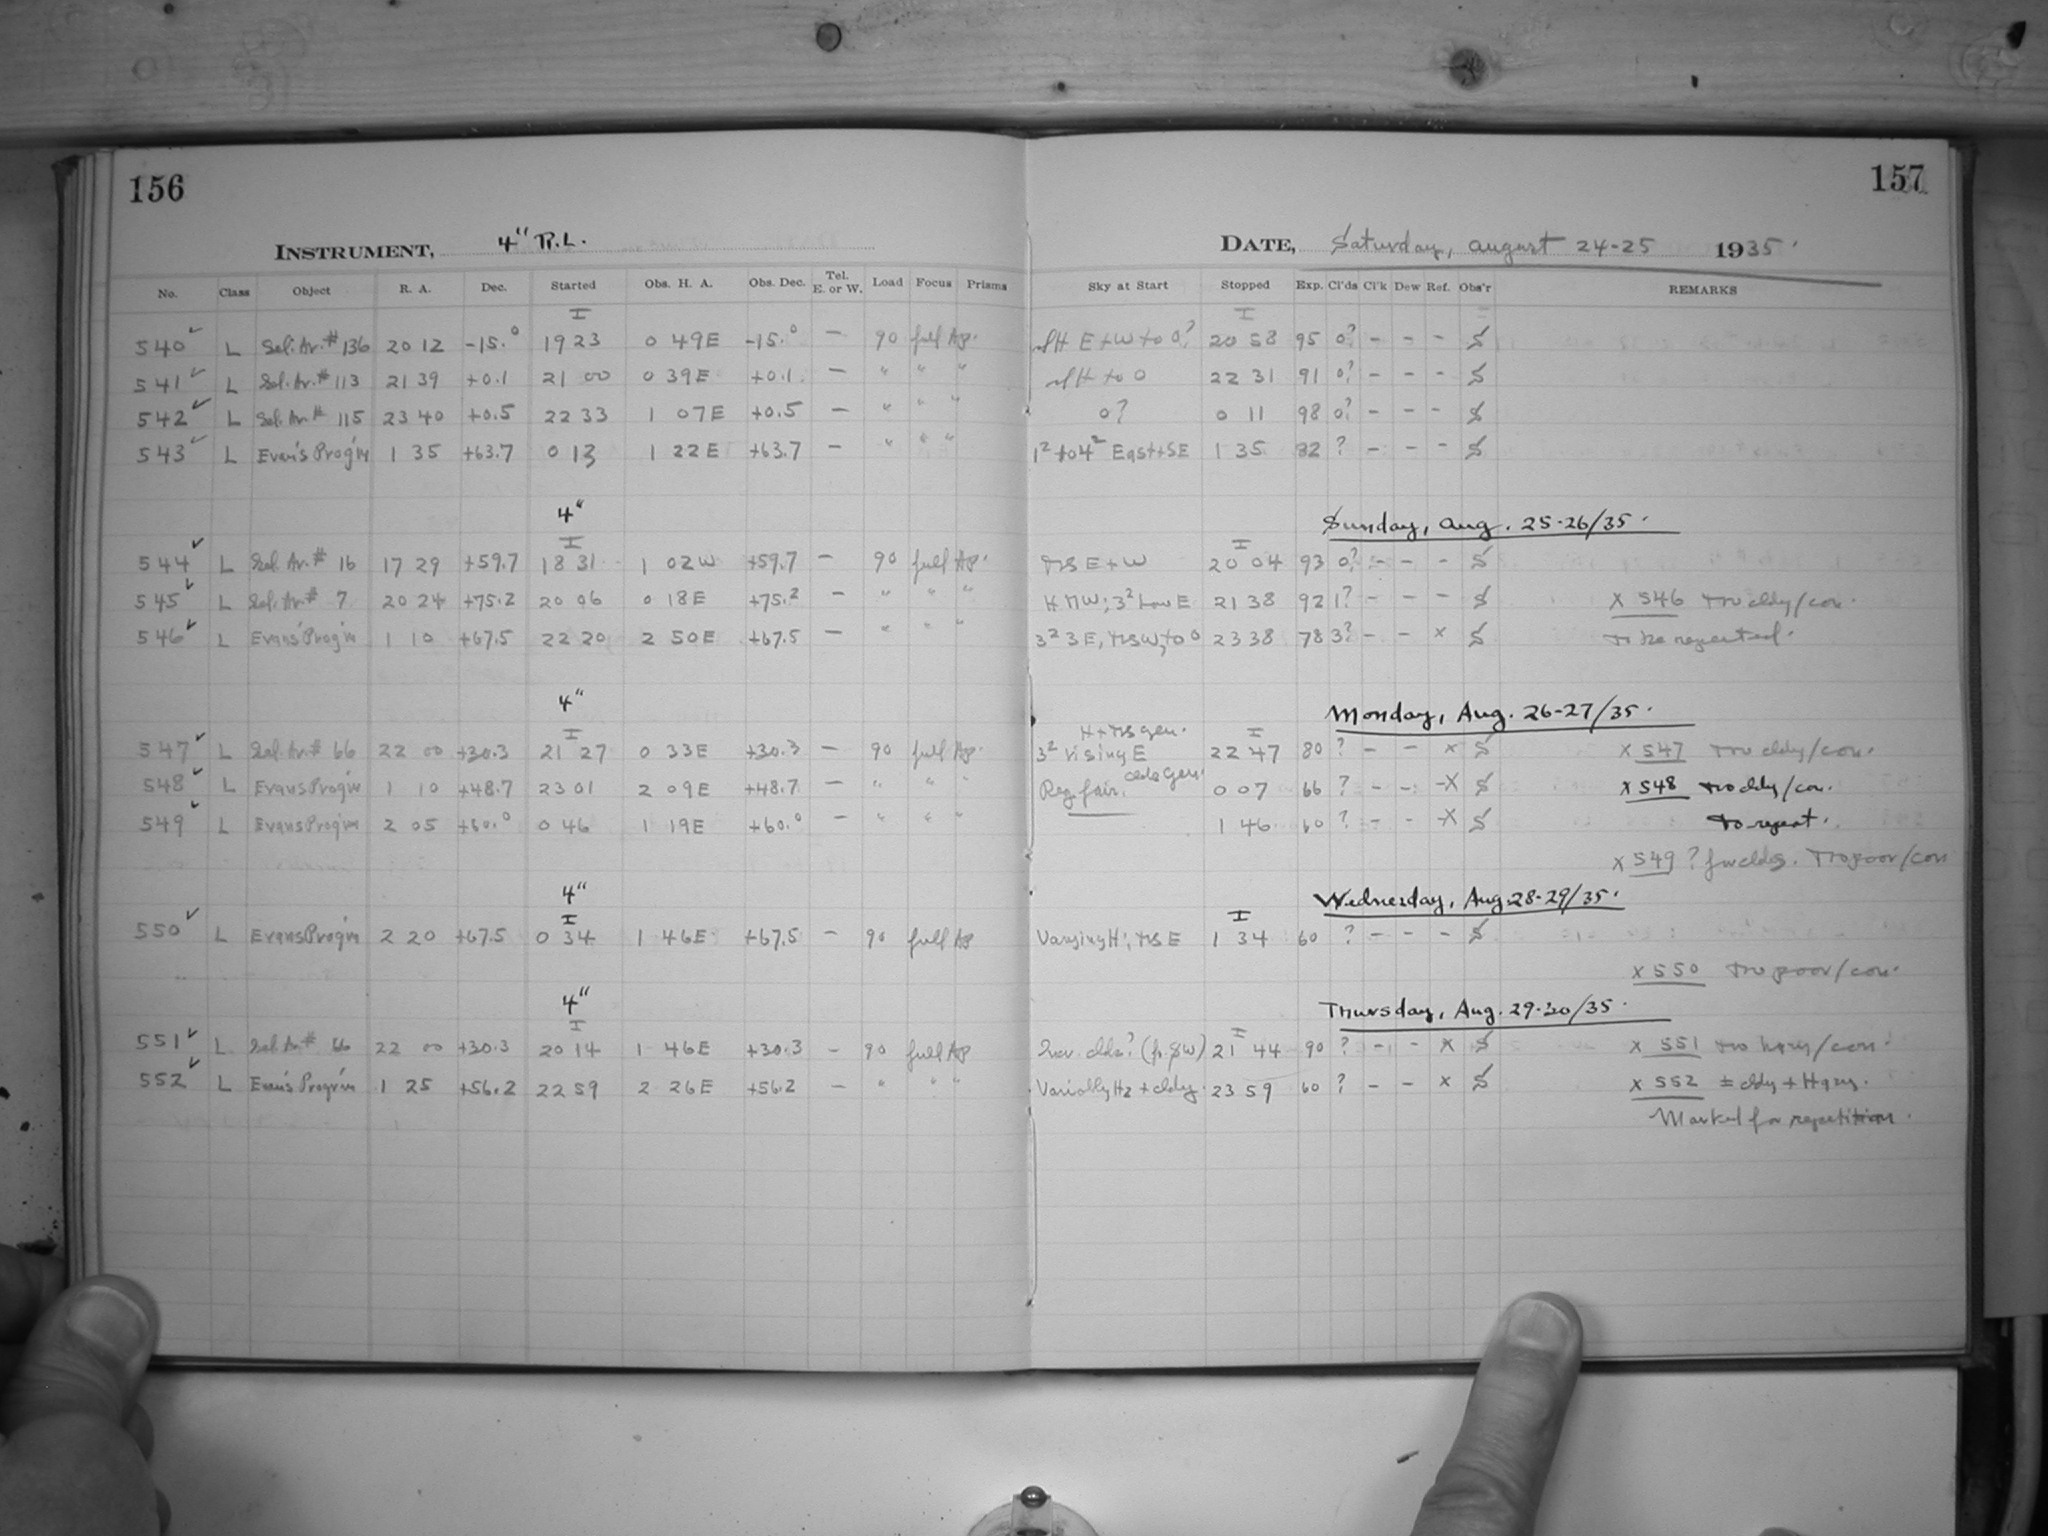 156
157
INSTRUMENT, 4"
DATE, Saturday, August 24-25 1935.
No. Class Object R. A. Dec. Started Obs. H. A. Obs. Dec. Tel. E. or W. Load Focus Prisms Sky at Start Stopped Exp. Cl'ds Cl'k Dew Ref. Obs'r REMARKS
I I
540 ✓ L Sel. Ar. # 136 20 12 -15.0 19 23 0 49E -15.0 — 90 full Ap. E+W to 0? 20 58 95 0? - - - S
541 ✓ L Sel. Ar. # 113 21 39 +0.1 21 00 0 39E +0.1 — " " " to 0 22 31 91 0? - - - S
542 ✓ L Sel. Ar. # 115 23 40 +0.5 22 33 1 07E +0.5 — " " " 0? 0 11 98 0? - - - S
543 ✓ L Evans Prog'm 1 35 +63.7 0 13 1 22E +63.7 — " " " 1² to 4² East+SE 1 35 82 ? - - - S
4" Sunday, Aug. 25-26/35.
I I
544 ✓ L Sel. Ar. # 16 17 29 +59.7 18 31 1 02W +59.7 — 90 full Ap. E+W 20 04 93 0? - - - S
545 ✓ L Sel. Ar. # 7 20 24 +75.2 20 06 0 18E +75.2 — " " " 3² Low E 21 38 92 1? - - - S x 546 cldy/con.
546 ✓ L Evans' Prog'm 1 10 +67.5 22 20 2 50E +67.5 — " " " 3² 3E, to 0 23 38 78 3? - - x S To be repeated.
4" Monday, Aug. 26-27/35.
I gen. I
547 ✓ L Sel. Ar. # 66 22 00 +30.3 21 27 0 33E +30.3 — 90 full Ap. 3² rising E 22 47 80 ? - - x S x 547 cldy/con.
548 ✓ L Evans Prog'm 1 10 +48.7 23 01 2 09E +48.7 — " " " Reg. fair. clds gen. 0 07 66 ? - - -x S x 548 cldy/con.
549 ✓ L Evans Prog'm 2 05 +60.0 0 46 1 19E +60.0 — " " " 1 46 60 ? - - -x S to repeat.
x 549 ? clds. poor/con
4" Wednesday, Aug. 28-29/35.
I I
550 ✓ L Evans Prog'm 2 20 +67.5 0 34 1 46E +67.5 — 90 full Ap Varying H; E 1 34 60 ? - - - S
x 550 poor/con.
4" Thursday, Aug. 29-30/35.
I I
551 ✓ L Sel. Ar. # 66 22 00 +30.3 20 14 1 46E +30.3 - 90 full Ap clds? 21 44 90 ? - - x S x 551 hazy/con.
552 ✓ L Evans Prog'm 1 25 +56.2 22 59 2 26E +56.2 — " " " Variably Hz + cldy. 23 59 60 ? - - x S x 552 ± cldy + Hazy.
Marked for repetition.